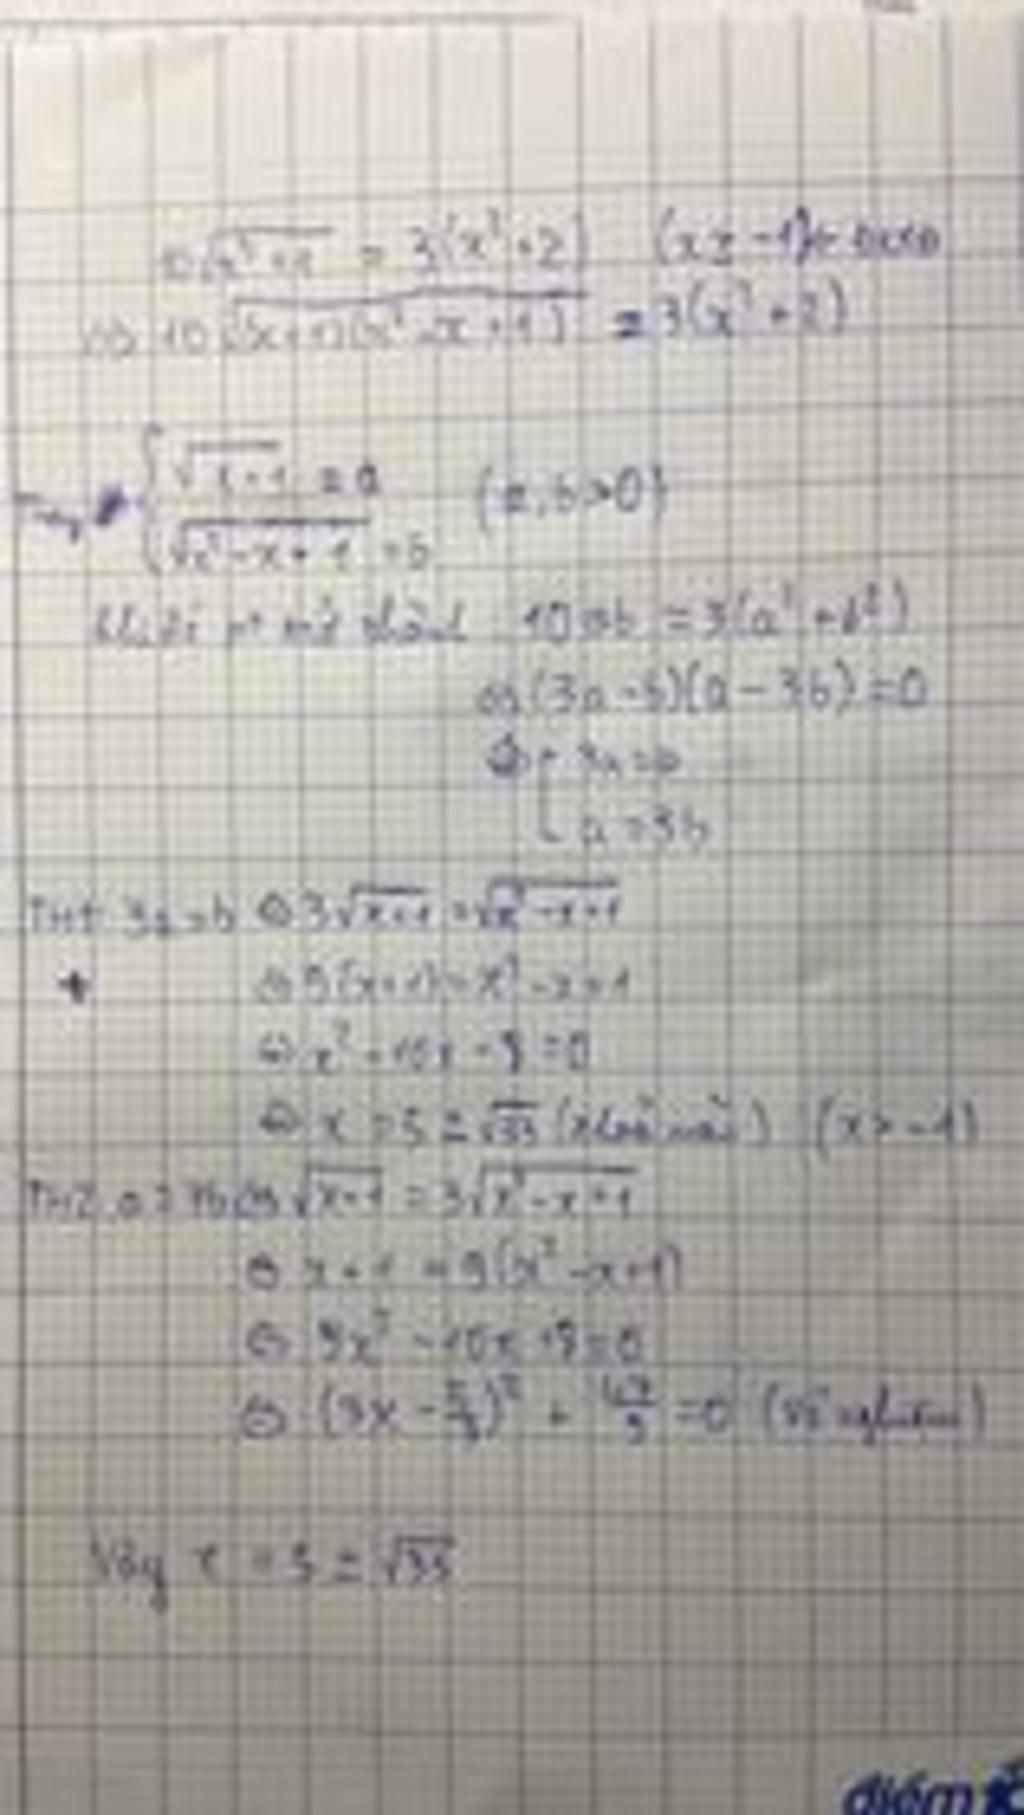 10√(x³+1) = 3(x²+2) (x ≥ -1)
⇔ 10√((x+1)(x²-x+1)) = 3(x²+2)
{ √(x+1) = a
√(x²-x+1) = b (a, b > 0)
10ab = 3(a²+b²)
⇔ (3a-b)(a-3b) = 0
⇔ [ 3a = b
a = 3b
TH1 3a = b ⇔ 3√(x+1) = √(x²-x+1)
⇔ 9(x+1) = x²-x+1
⇔ x²-10x-8 = 0
⇔ x = 5 ± √33 (thoả mãn) (x > -1)
TH2 a = 3b ⇔ √(x+1) = 3√(x²-x+1)
⇔ x+1 = 9(x²-x+1)
⇔ 9x²-10x+8 = 0
⇔ (3x-5/3)² + 47/9 = 0 (vô nghiệm)
Vậy x = 5 ± √33
điểm